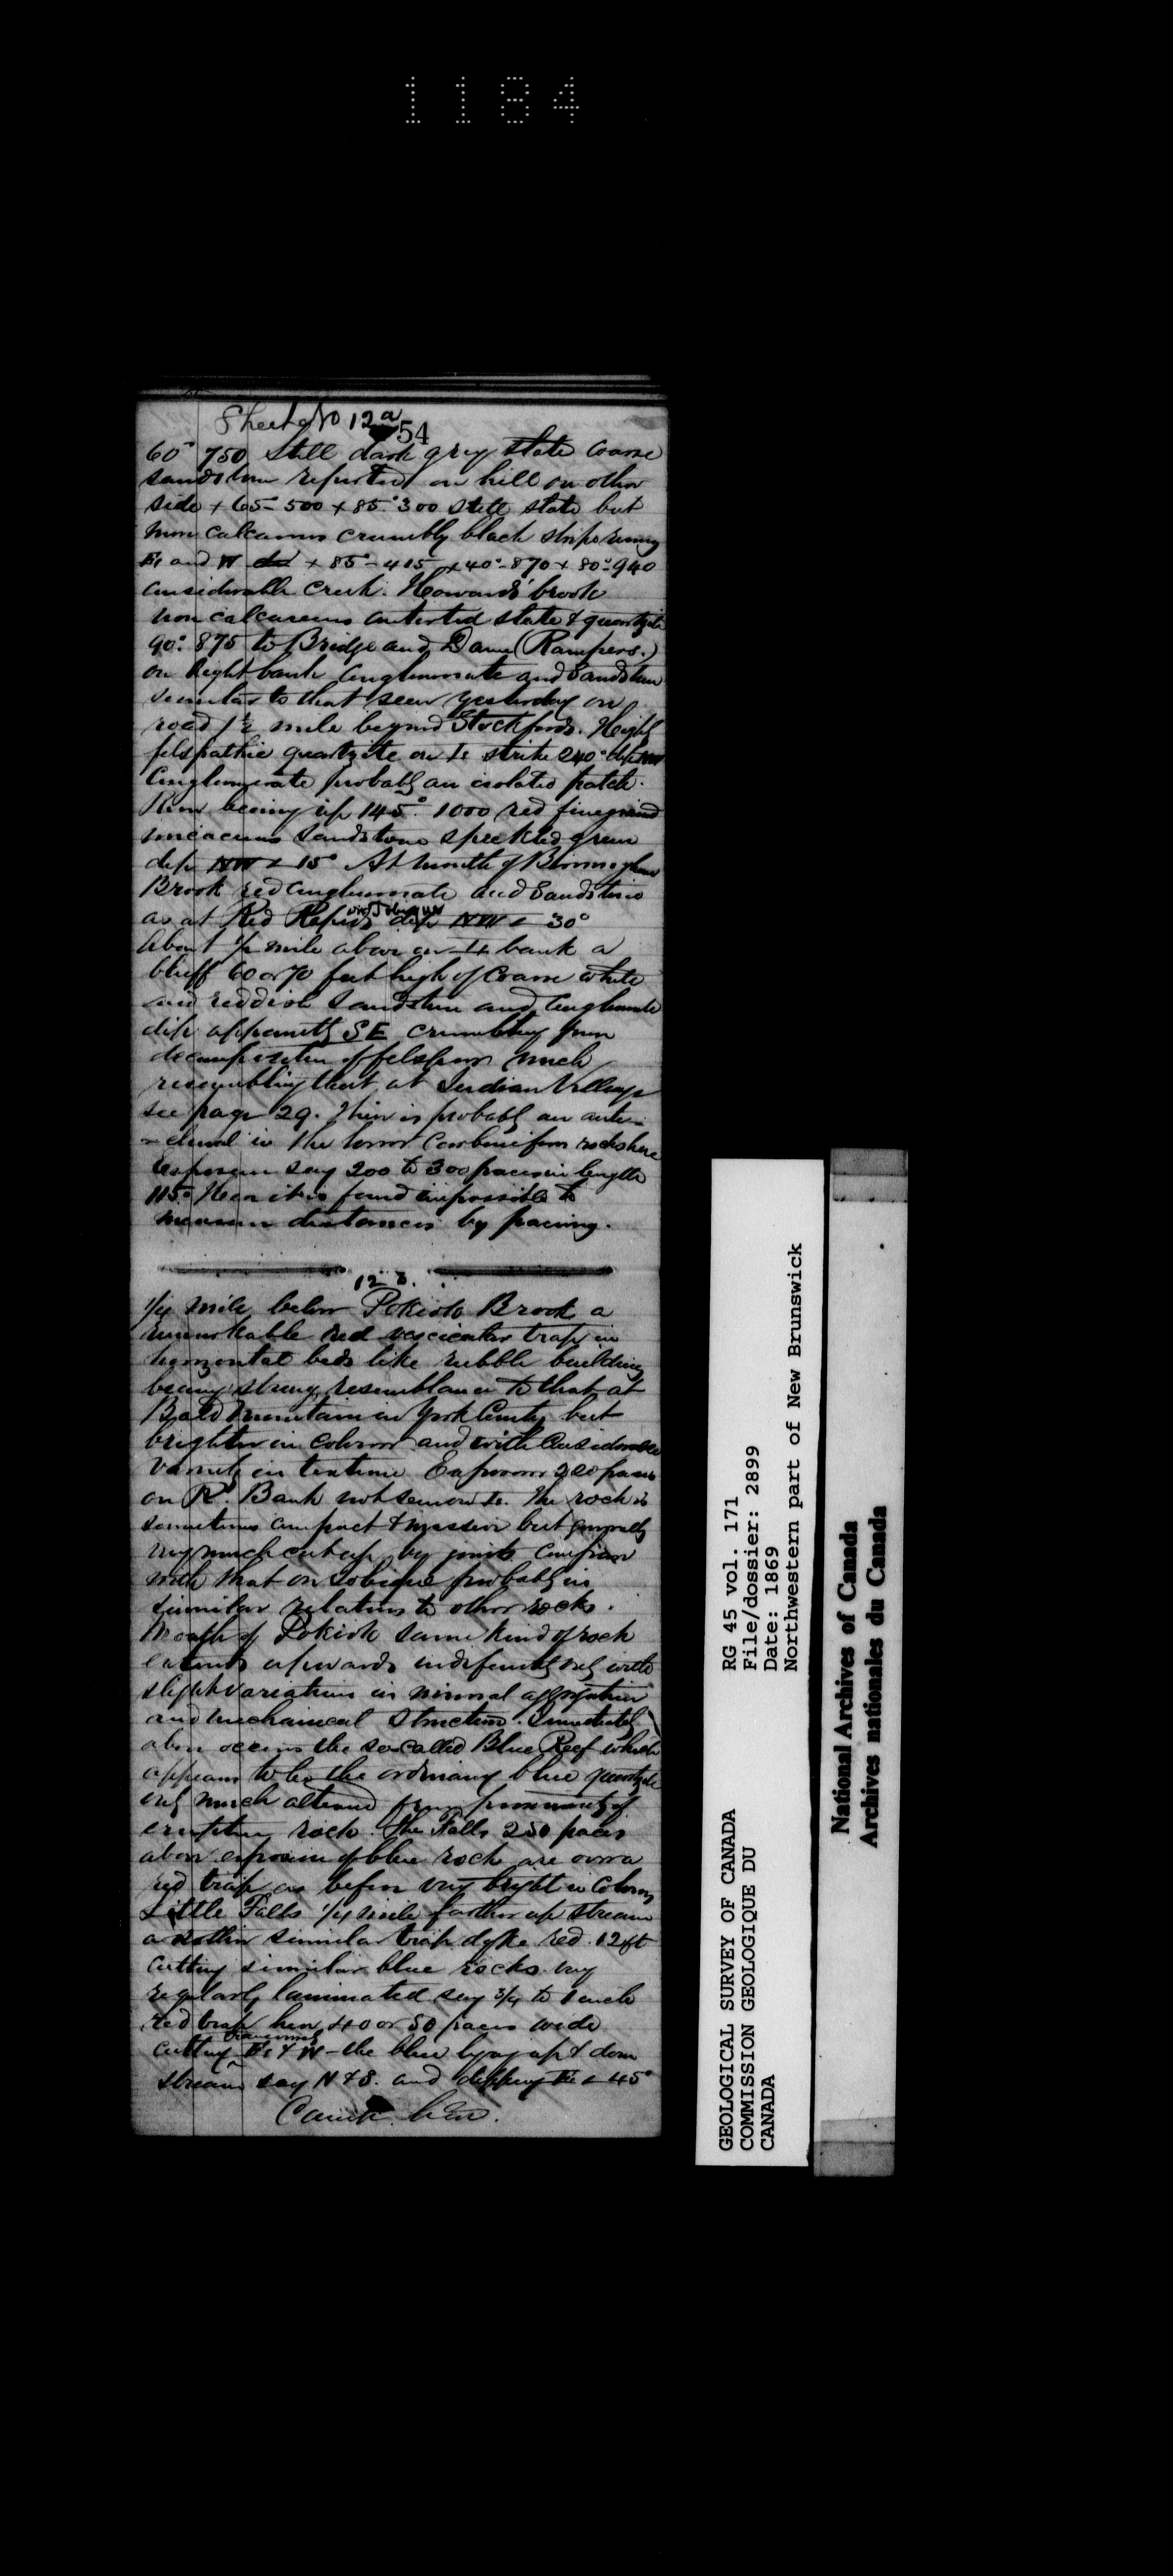 1184
Sheet No 12a
54
60° 750 Still dark grey slate coarse
sandstone reported on hill on other
side + 65° 500 + 85° 300 still slate but
non calcareous crumbly black strips running
E and W + 85° - 415 + 40° - 870 + 80° - 940
considerable creek. Howards' brook
non calcareous contorted slate & quartzite
90° 875 to Bridge and Dam (Kampers.)
on Right bank conglomerate and Sandstone
similar to that seen yesterday on
road 1½ mile beyond Stockfords. Highly
felspathic quartzite on L. strike 240° dip NW
Conglomerate probably an isolated patch.
River bearing up 145° 1000 red finegrained
micaceous Sandstone speckled green
dip NW < 15° At mouth of
Brook red conglomerate and Sandstone
as at Red Rapids dip NW < 30°
About ½ mile above on L bank a
bluff 60 or 70 feet high of Coarse white
and reddish Sandstone and Conglomerate
dip apparently SE crumbling from
decomposition of felspar much
resembling that at Indian Village
see page 29. There is probably an anti-
-clinal in the lower Carboniferous rocks here
Exposure say 200 to 300 paces in length
115° Here it is found impossible to
measure distances by pacing.
12 b.
1/4 mile below Pokiok Brook a
remarkable red vescicular trap in
horizontal beds like rubble building
bearing strong resemblance to that at
Bald Mountain in York County but
brighter in colour and with considerable
variety in texture Exposure 200 paces
on R. Bank not seen on L. The rock is
sometimes compact & massive but generally
very much cut up by joints Compare
with that on Tobique probably in
similar relations to other rocks.
Mouth of Pokiok same kind of rock
extends upwards indefinitely only with
slight variations in mineral aggregation
and mechanical structure. Immediately
above occurs the so-called Blue Reef which
appears to be the ordinary blue quartzite
only much altered from proximity of
eruptive rock. The Falls 250 paces
above exposure of blue rock are over a
red trap as before very bright in colour,
Little Falls 1/4 mile farther up stream
another similar trap dyke red. 12 ft
cutting similar blue rocks very
regularly laminated say 3/4 to 1 inch
red trap here 40 or 50 paces wide
cutting transversely E & W - the blue lying up & down
stream say N & S. and dipping E < 45°
GEOLOGICAL SURVEY OF CANADA
COMMISSION GEOLOGIQUE DU
CANADA
RG 45 vol. 171
File/dossier: 2899
Date: 1869
Northwestern part of New Brunswick
National Archives of Canada
Archives nationales du Canada